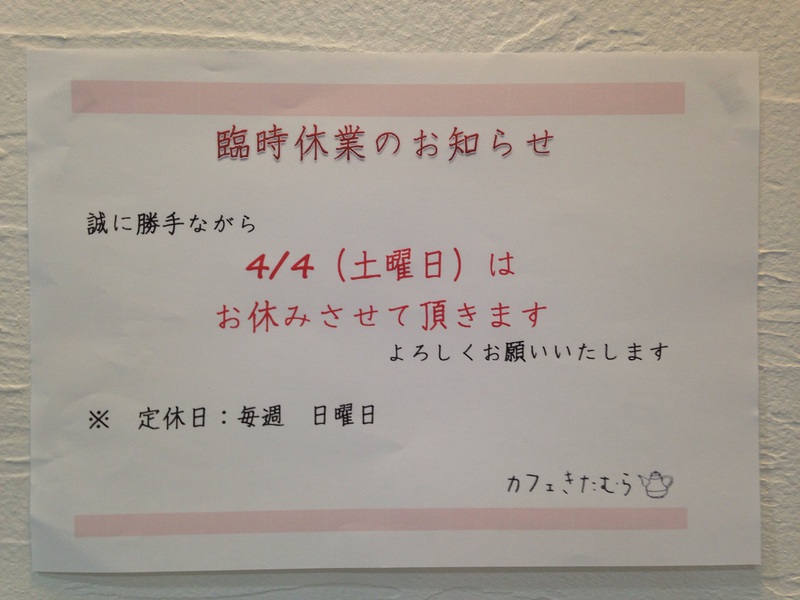 臨時休業のお知らせ
誠に勝手ながら
4/4（土曜日）は
お休みさせて頂きます
よろしくお願いいたします
※　定休日：毎週　日曜日
カフェきたむら